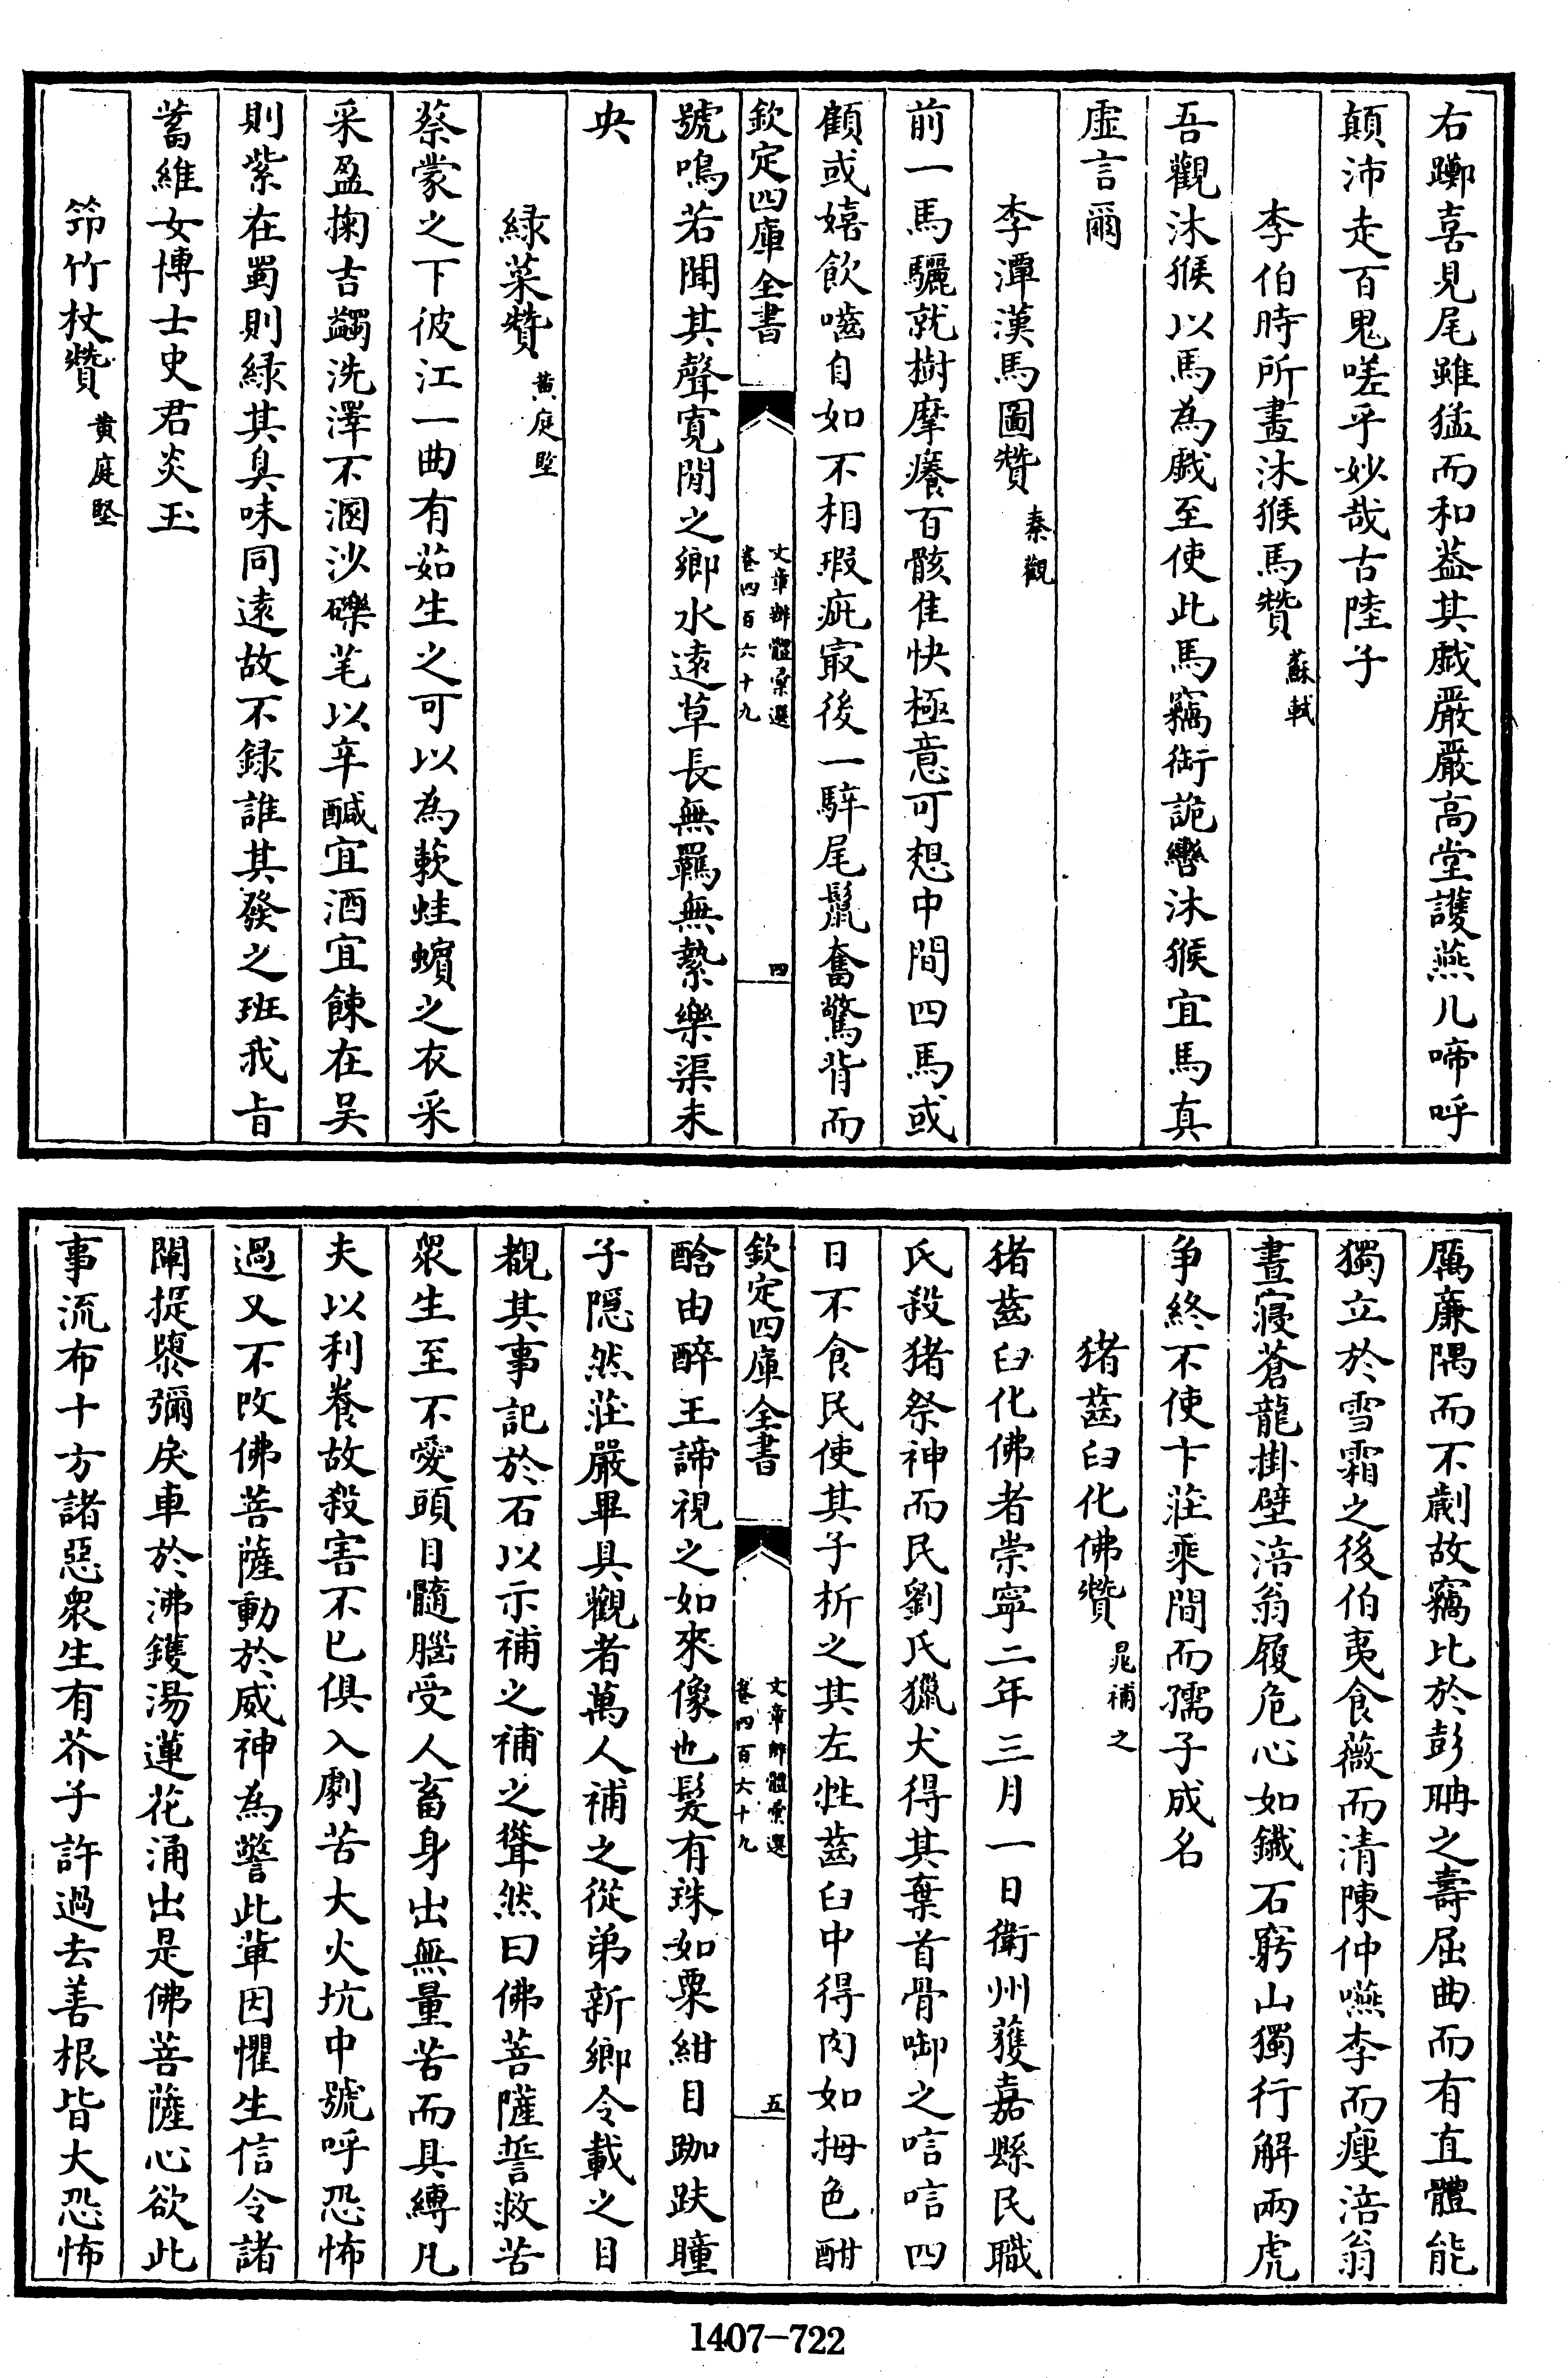 右躑喜見尾雖猛而和蓋其戯嚴嚴高堂護燕几啼呼
顛沛走百鬼嗟乎妙哉古陸子
李伯時所畫沐猴馬贊 蘇軾
吾觀沐猴以馬為戯至使此馬竊銜詭轡沐猴宜馬真
虛言爾
李潭漢馬圖贊 秦觀
前一馬驪就樹摩癢百骸隹快極意可想中間四馬或
顧或嬉飲嚙自如不相瑕疵㝡後一騂尾鬛奮驚背而
欽定四庫全書
文章辨體彙選
卷四百六十九
四
號鳴若聞其聲寛閒之鄉水逺草長無羈無縶樂渠未
央
緑菜贊 黄庭堅
蔡蒙之下彼江一曲有茹生之可以為蔌蛙蠙之衣采
采盈掬吉蠲洗澤不溷沙礫芼以辛醎宜酒宜餗在吴
則紫在蜀則緑其臭味同逺故不録誰其發之班我㫖
蓄維女博士史君炎玉
筇竹杖贊 黄庭堅
厲亷隅而不劌故竊比於彭聃之壽屈曲而有直體能
獨立於雪霜之後伯夷食薇而清陳仲嚥李而瘦涪翁
晝寢蒼龍掛壁涪翁履危心如鐵石窮山獨行解兩虎
争終不使卞莊乘間而孺子成名
猪齒臼化佛贊 晁補之
猪齒臼化佛者崇寧二年三月一日衛州獲嘉縣民職
氏殺猪祭神而民劉氏獵犬得其棄首骨啣之唁唁四
日不食民使其子析之其左牡齒臼中得肉如拇色酣
欽定四庫全書
文章辨體彙選
卷四百六十九
五
酩由醉王諦視之如來像也髮有珠如粟紺目跏趺瞳
子隠然莊嚴畢具觀者萬人補之從弟新鄉令載之目
覩其事記於石以示補之補之聳然曰佛菩薩誓救苦
衆生至不愛頭目髓腦受人畜身出無量苦而具縛凡
夫以利養故殺害不已俱入劇苦大火坑中號呼恐怖
過又不改佛菩薩動於威神為警此軰因懼生信令諸
闡提隳彌戾車於沸鑊湯蓮花涌出是佛菩薩心欲此
事流布十方諸惡衆生有芥子許過去善根皆大恐怖
1407-722